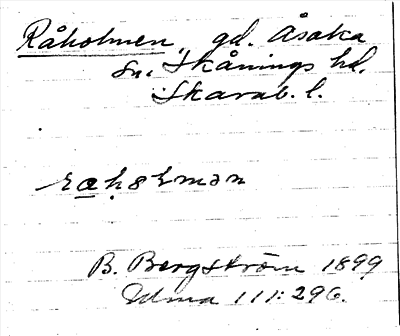 Råholmen, gd. Åsaka
sn. Skånings hd.
Skarab. l.
B. Bergström 1899
Ulma 111:296.